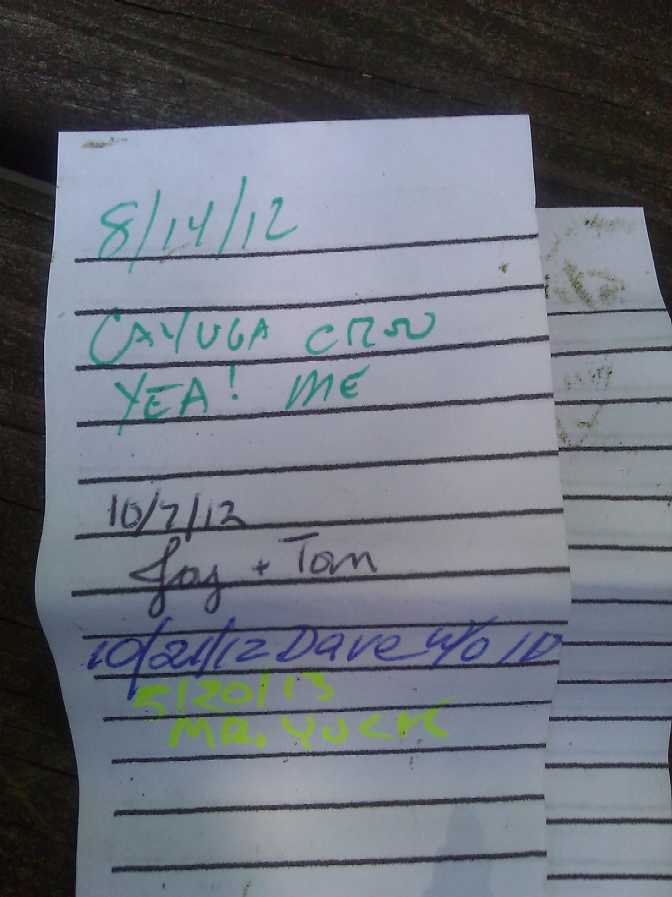 8/14/12
CAYUGA CROW
YEA! ME
10/7/12
Joy + Tom
10/21/12 Dave w/o ID
5/20/13
MR. YUCK